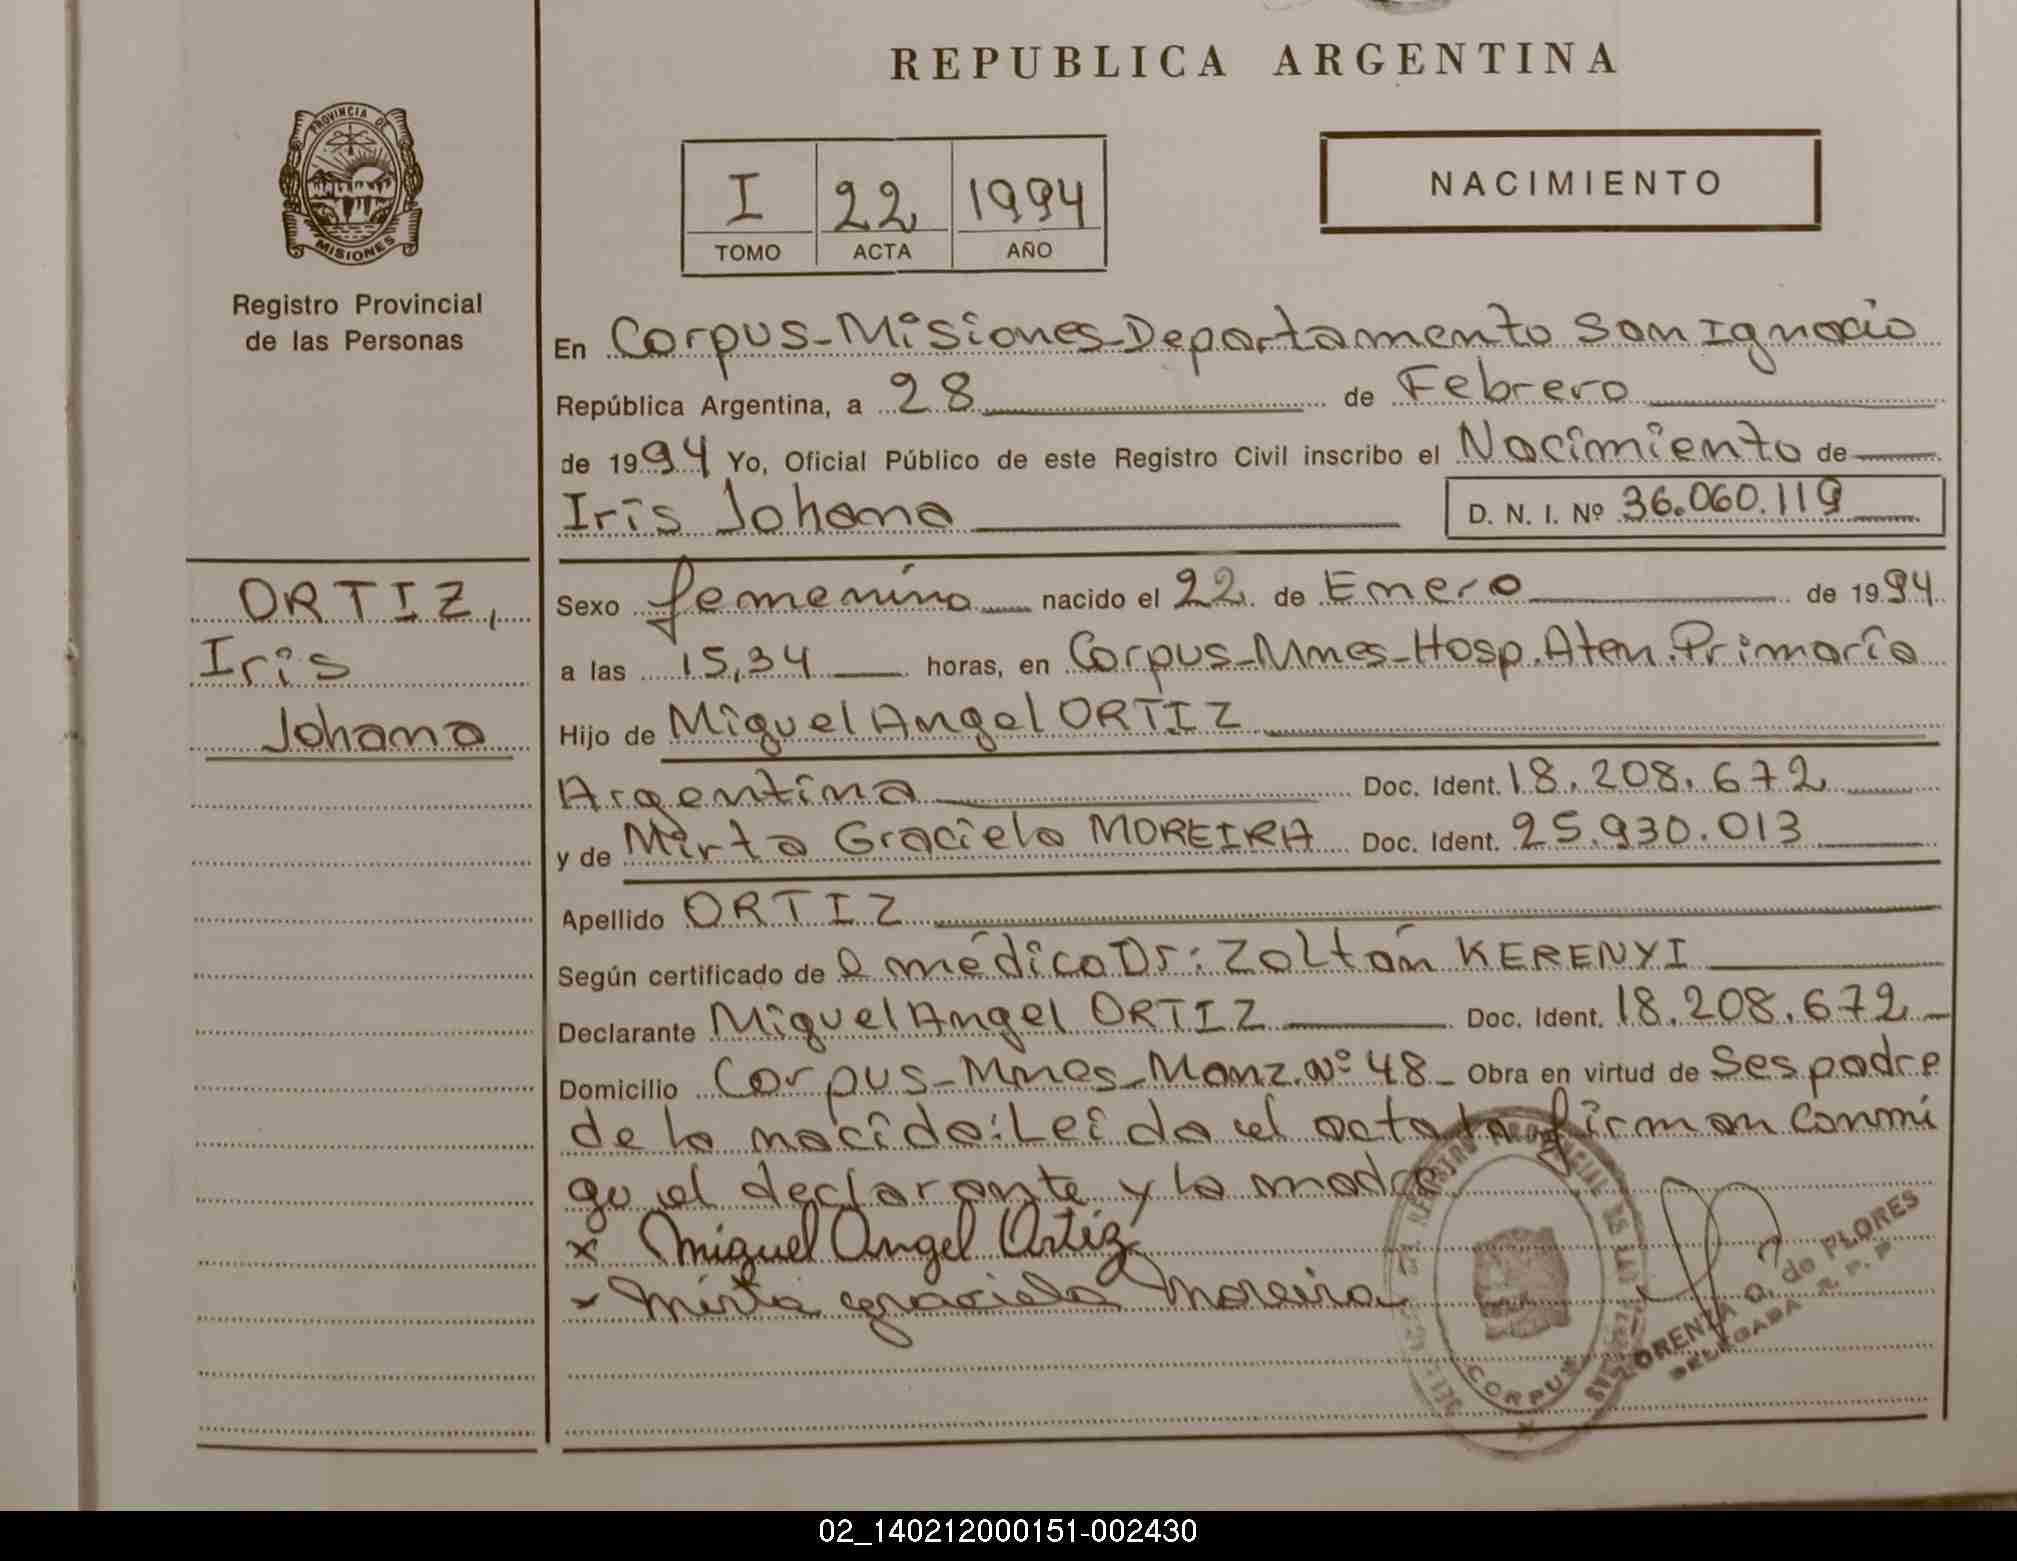 REPUBLICA ARGENTINA
PROVINCIA DE
MISIONES
Registro Provincial
de las Personas
I 22 1994
TOMO ACTA AÑO
NACIMIENTO
En Corpus-Misiones-Departamento San Ignacio
República Argentina, a 28 de Febrero
de 1994 Yo, Oficial Público de este Registro Civil inscribo el Nacimiento de
Iris Johana D. N. I. Nº 36.060.119
ORTIZ,
Iris
Johana
Sexo femenino nacido el 22 de Enero de 1994
a las 15,34 horas, en Corpus-Mnes-Hosp.Aten.Primaria
Hijo de Miguel Angel ORTIZ
Argentina Doc. Ident. 18.208.672
y de Mirta Graciela MOREIRA Doc. Ident. 25.930.013
Apellido ORTIZ
Según certificado de médico Dr: Zoltán KERENYI
Declarante Miguel Angel ORTIZ Doc. Ident. 18.208.672
Domicilio Corpus-Mnes-Manz.Nº 48- Obra en virtud de Ses padre
de la nacida: Leida el acta la firman conmi
go el declarante y la madre
x Miguel Angel Ortiz
x Mirta graciela Moreira
CORPUS
LORENZA O. de FLORES
DELEGADA R. P. P.
02_140212000151-002430